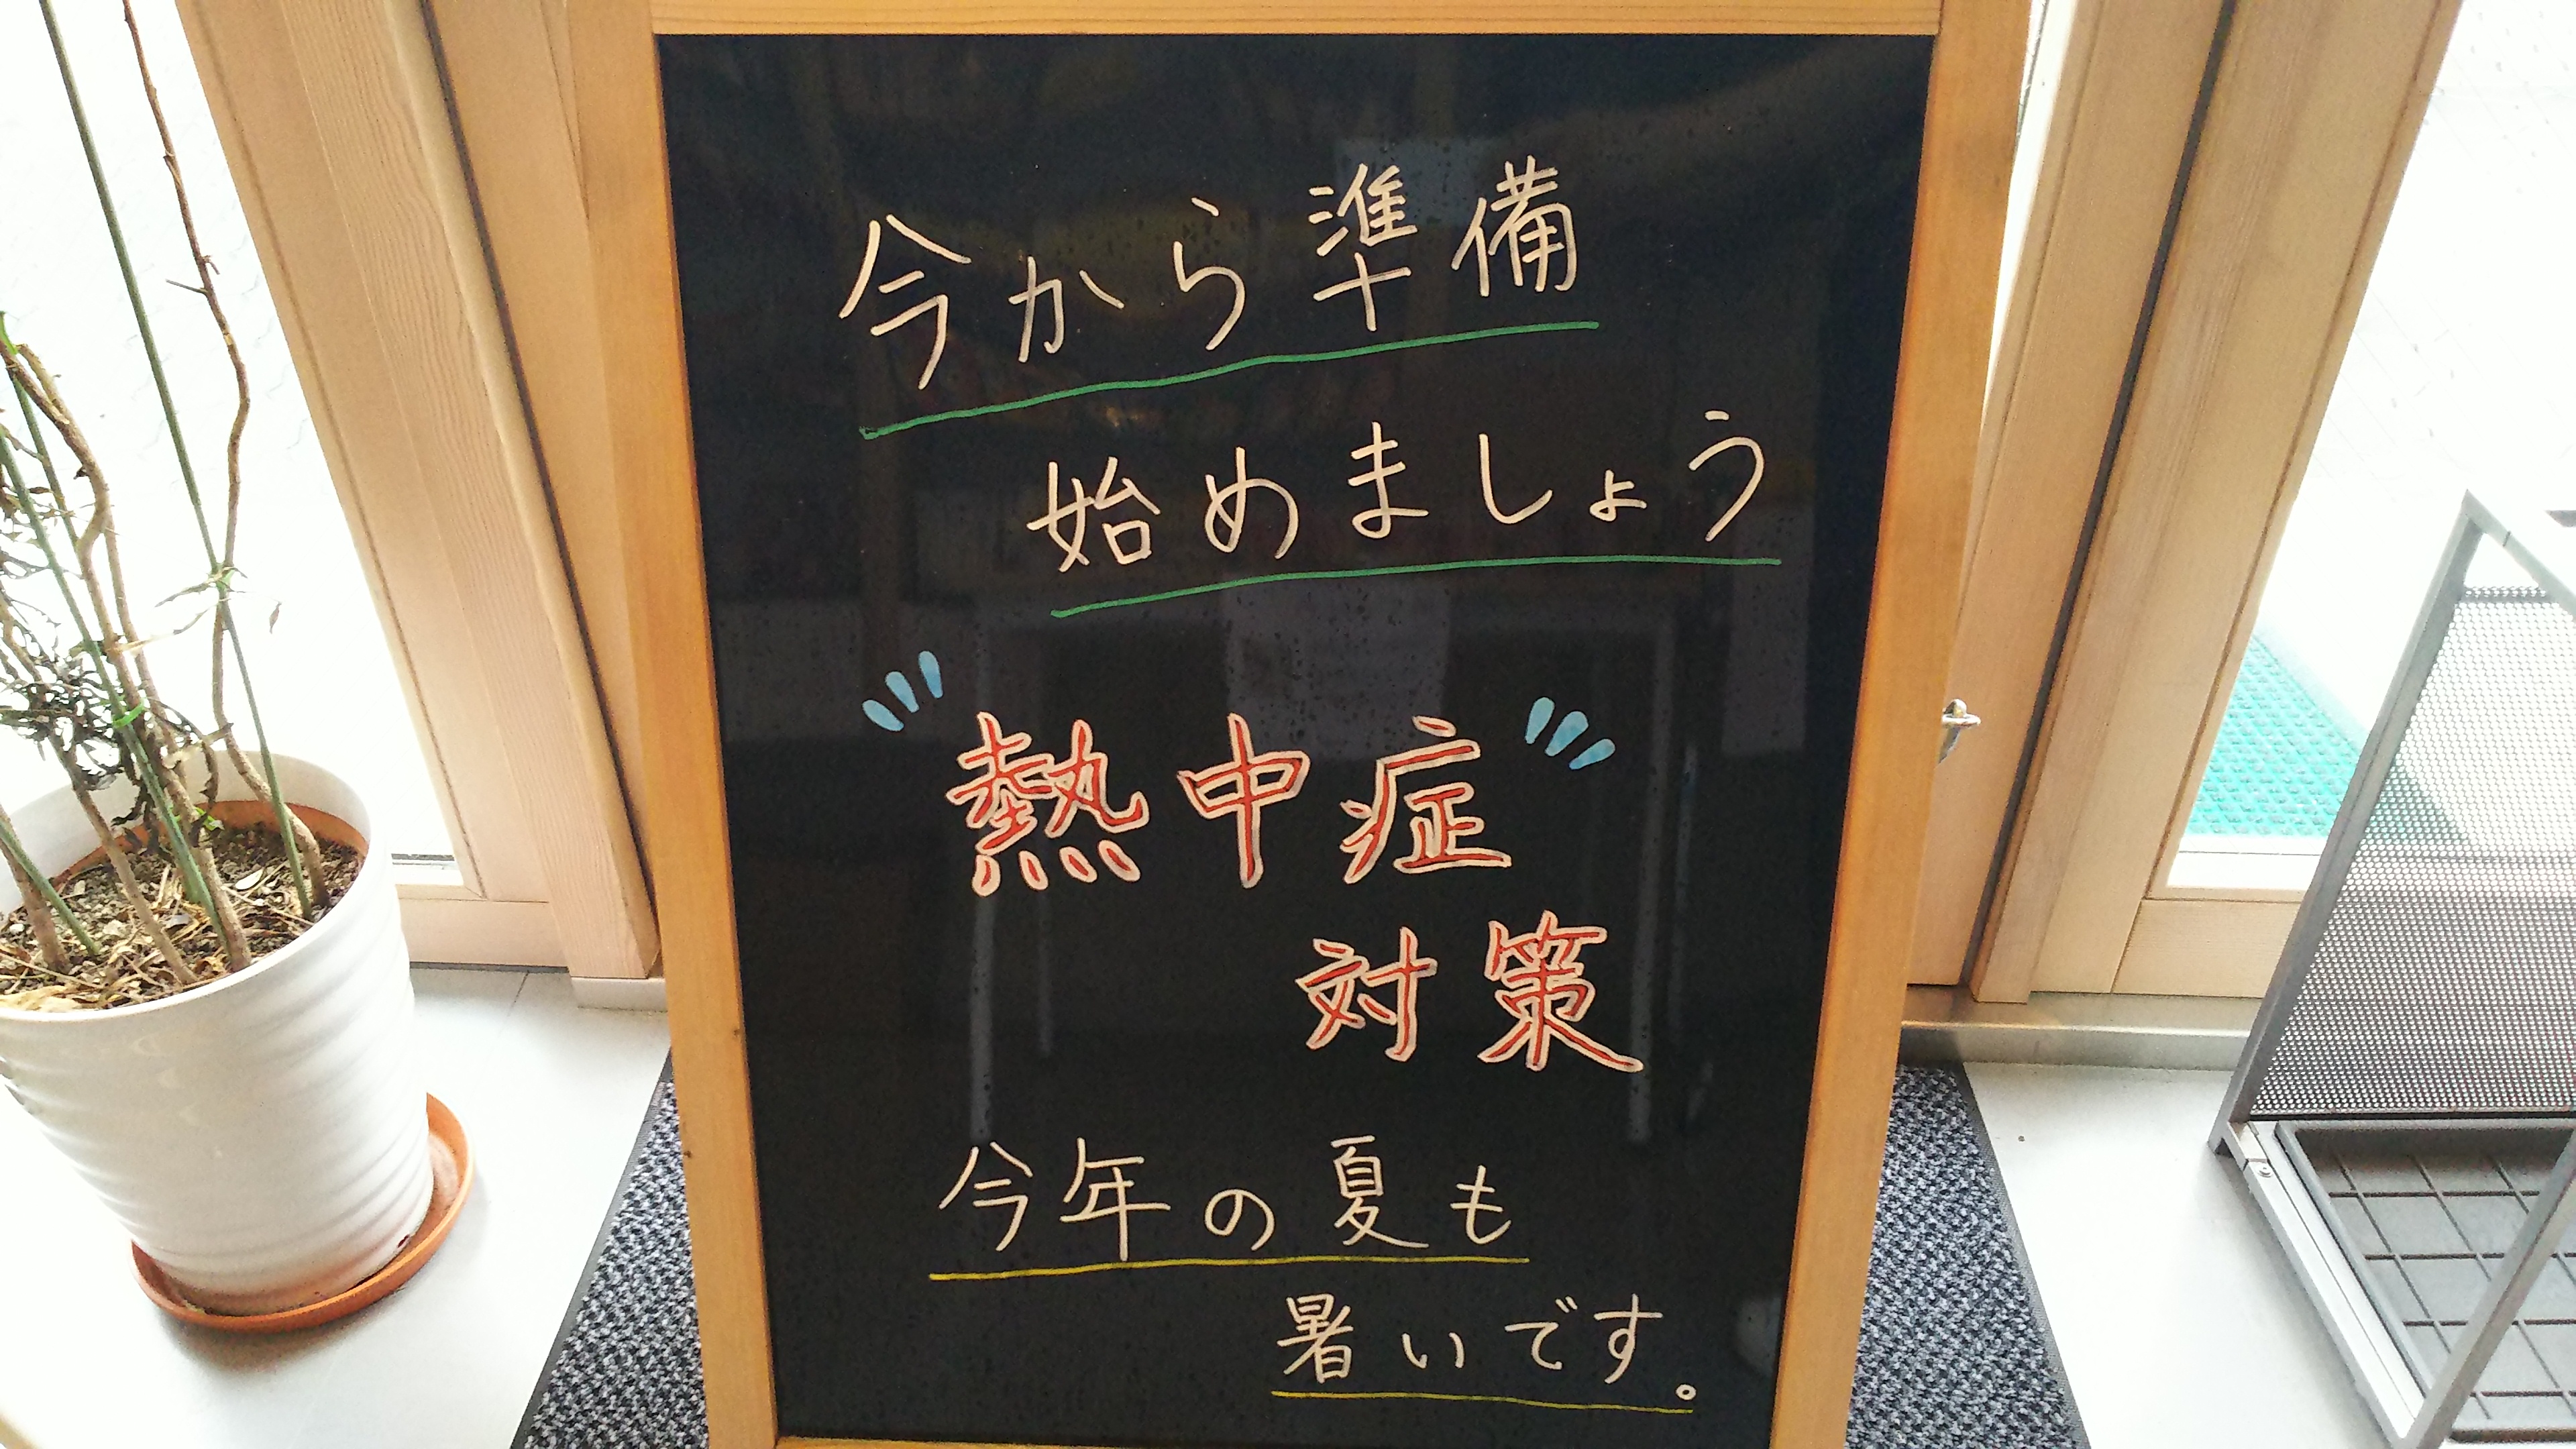 今から準備
始めましょう
熱中症
対策
今年の夏も
暑いです。